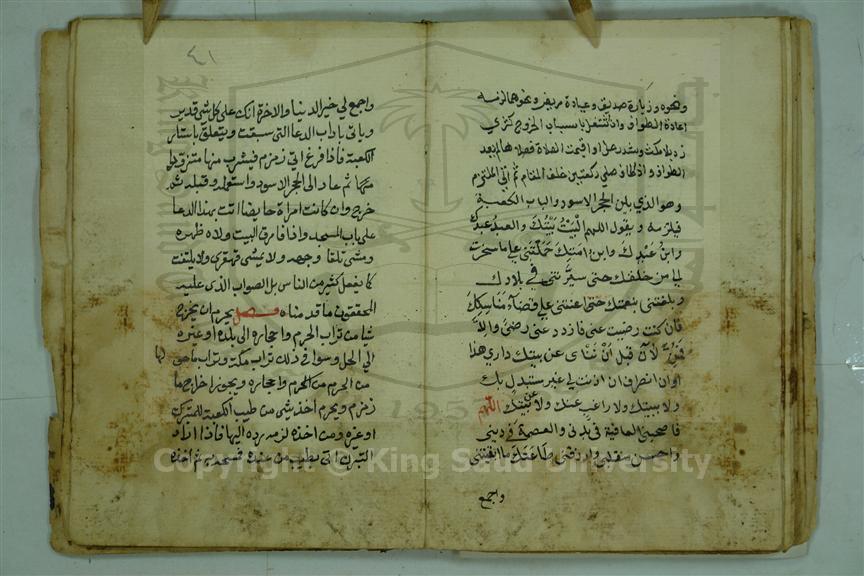 ونحوه وزيارة صديق وعيادة مريض ونحوها لزمه
اعادة الطواف وان اشتغل باسباب الخروج كشرى
زد بلا مكث وشد رحل او اقيمت الصلاة فصلاها لم يعد
الطواف واذا طاف صلى ركعتين خلف المقام ثم اتى الملتزم
وهو الذي بين الحجر الاسود والباب الكعبة
فيلزمه ويقول اللهم الْبَيْتُ بَيْتُكَ والعبدُ عبدُك
وابنُ عَبْدِكَ وابن امَتِكَ حَمَلْتَني على ما سخرت
لي من خلقك حتى سيَّرتني في بلادك
وبلغتني بنعمتك حتى اعنتني على قضآء مناسِكِكَ
فان كنت رضيت عني فازدد عني رضىً والاّ
فمُنَّ لآن قبل اَنْ تَنْاى عن بيتك داري هذا
اوان انصرافي ان اذنت لي غير مستبدل بك
ولا ببيتك ولا راغب عنك ولا عن بيتك اللهم
فاصحبني العافية في بدني والعصمة في ديني
واحسن منقلبي وارزقني طاعتك ما ابقيتني
واجمع
٤١
واجمع لي خير الدنيا والاخرة انك على كل شي قدير
وياتي باداب الدعا التي سبقت ويتعلق باستار
الكعبة فاذا فرغ اتى زمزم فيشرب منها متزودا
منها ثم عاد الى الحجر الاسود واستلمه وقبله ثم
خرج وان كانت امراة حايضا اتت بهذا الدعا
على باب المسجد واذا فارق البيت ولاه ظهره
ومشى تلقا وجهه ولا يمشي قهقرى ولا يلتفت
كما يفعل كثير من الناس بل الصواب الذي عليه
المحققون ما قدمناه فصل يحرم ان يخرج
شيا من تراب الحرم واحجاره الى بلده او غيره
الى الحل وسوا في ذلك تراب مكة وتراب ما حولها
من الحرم من الحرم واحجاره ويجوز اخراج ما
زمزم ويحرم اخذ شي من طيب الكعبة للتبرك
او غيره ومن اخذه لزمه رده اليها فاذا اراد
التبرك اتى بطيب من عنده فمسحه به ثم اخذه
Copyright © King Saud University
1957